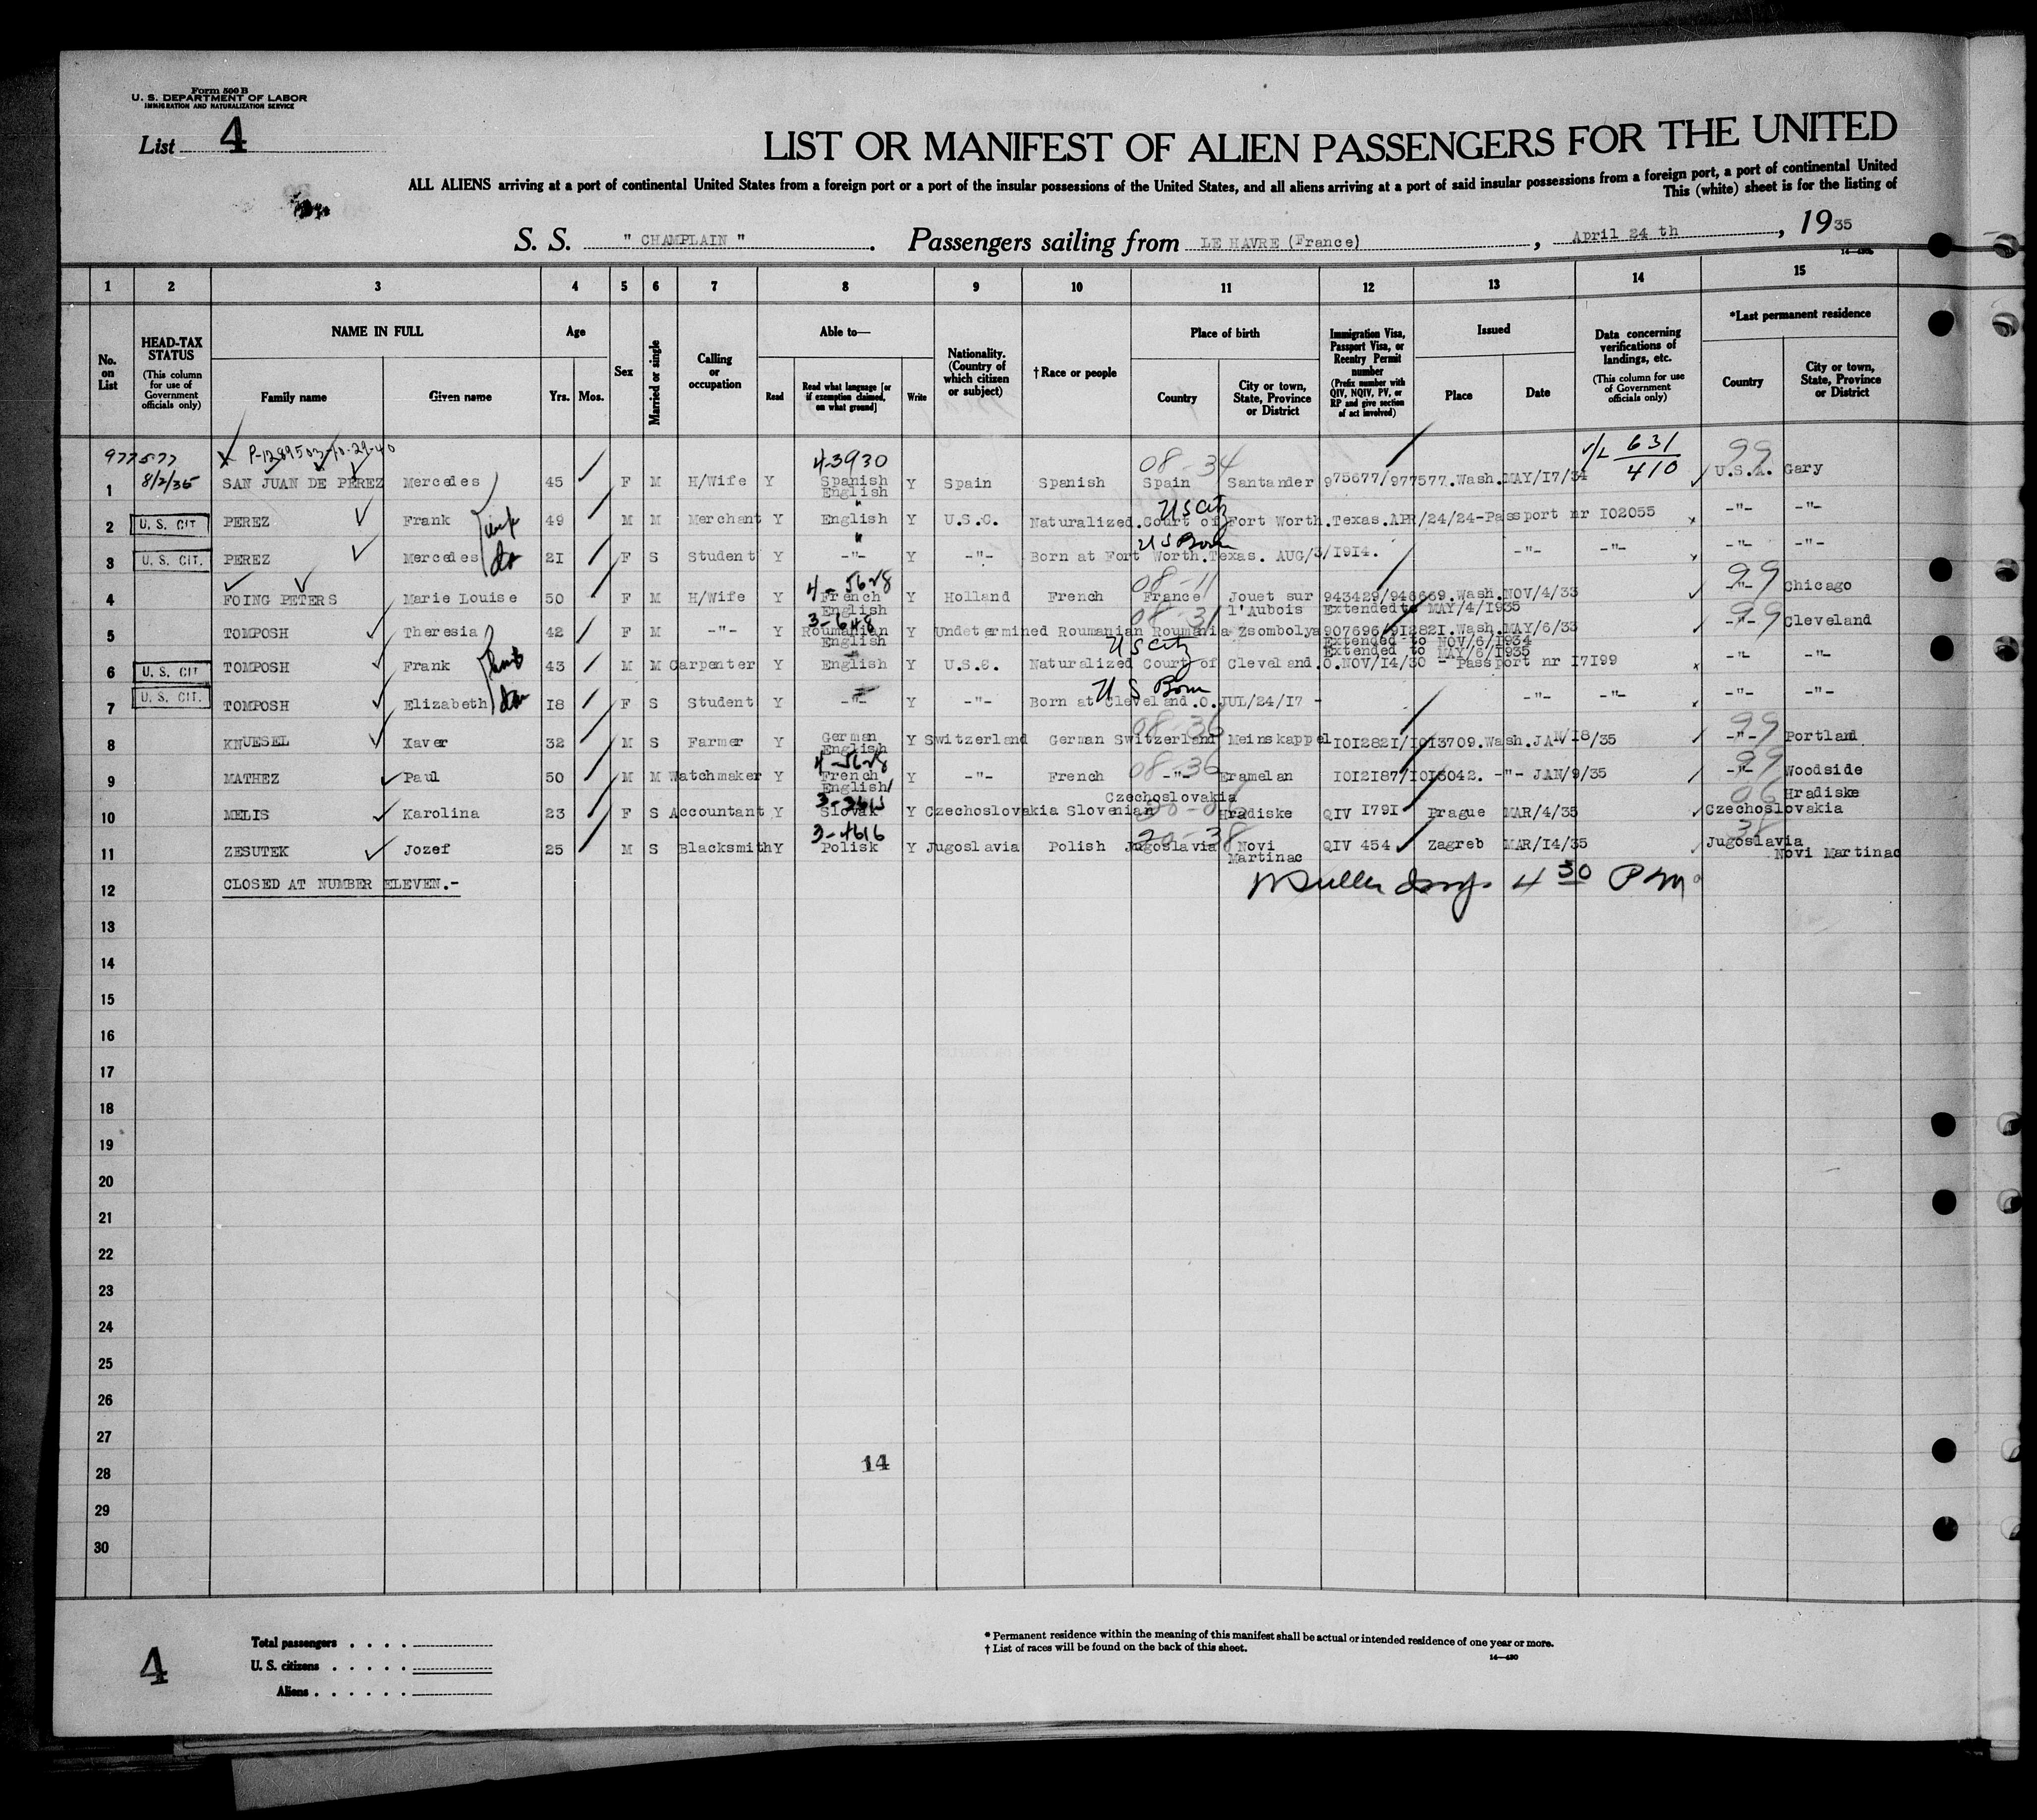 Form 500 B
U. S. DEPARTMENT OF LABOR
IMMIGRATION AND NATURALIZATION SERVICE
List 4
LIST OR MANIFEST OF ALIEN PASSENGERS FOR THE UNITED
ALL ALIENS arriving at a port of continental United States from a foreign port or a port of the insular possessions of the United States, and all aliens arriving at a port of said insular possessions from a foreign port, a port of continental United
This (white) sheet is for the listing of
S. S. " CHAMPLAIN " . Passengers sailing from LE HAVRE (France) , April 24 th , 1935
14—430b
1 2 3 4 5 6 7 8 9 10 11 12 13 14 15
No. on List
HEAD-TAX STATUS (This column for use of Government officials only)
NAME IN FULL Family name Given name
Age Yrs. Mos.
Sex
Married or single
Calling or occupation
Able to— Read Read what language [or if exemption claimed, on what ground] Write
Nationality. (Country of which citizen or subject)
† Race or people
Place of birth Country City or town, State, Province or District
Immigration Visa, Passport Visa, or Reentry Permit number (Prefix number with QIV, NQIV, PV, or RP and give section of act involved)
Issued Place Date
Data concerning verifications of landings, etc. (This column for use of Government officials only)
*Last permanent residence Country City or town, State, Province or District
977577 P-1289503-10-29-40 4-3930 08-34 V/L 631/410 99
1 8/2/35 SAN JUAN DE PEREZ Mercedes 45 F M H/Wife Y Spanish English Y Spain Spanish Spain Santander 975677/977577.Wash.MAY/17/34 U.S.A. Gary
US City
2 U. S. CIT. PEREZ Frank 49 M M Merchant Y English Y U.S.C. Naturalized.Court of Fort Worth.Texas.APR/24/24-Passport nr I02055 -"- -"-
US Born
3 U. S. CIT. PEREZ Mercedes 2I F S Student Y -"- Y -"- Born at Fort Worth.Texas. AUG/3/I9I4. -"- -"- -"- -"-
4-5628 08-11 99
4 FOING PETERS Marie Louise 50 F M H/Wife Y French English Y Holland French France Jouet sur l'Aubois 943429/946669.Wash.NOV/4/33 Extended to MAY/4/I935 -"- Chicago
3-648 08-31 99
5 TOMPOSH Theresia 42 F M -"- Y Roumanian English Y Undetermined Roumanian Roumania Zsombolya 907696/9I282I.Wash.MAY/6/33 Extended to NOV/6/I934 Extended to MAY/6/I935 -"- Cleveland
US City
6 U. S. CIT. TOMPOSH Frank 43 M M Carpenter Y English Y U.S.C. Naturalized Court of Cleveland.O.NOV/14/30 - Passport nr I7I99 -"- -"-
U S Born
7 U. S. CIT. TOMPOSH Elizabeth I8 F S Student Y -"- Y -"- Born at Cleveland.O.JUL/24/I7 - -"- -"- -"- -"-
08-36 99
8 KNUESEL Xaver 32 M S Farmer Y German English Y Switzerland German Switzerland Meinskappel I0I282I/I0I3709.Wash.JAN/I8/35 -"- Portland
4-5628 08-36 99
9 MATHEZ Paul 50 M M Watchmaker Y French English Y -"- French -"- Eramelan I0I2I87/I0I3042. -"- JAN/9/35 -"- Woodside
10 MELIS Karolina 23 F S Accountant Y Slovak Y Czechoslovakia Slovenian Czechoslovakia Hradiske QIV I79I Prague MAR/4/35 Czechoslovakia Hradiske
3-4616 20-38 38
11 ZESUTEK Jozef 25 M S Blacksmith Y Polisk Y Jugoslavia Polish Jugoslavia Novi Martinac QIV 454 Zagreb MAR/I4/35 Jugoslavia Novi Martinac
12 CLOSED AT NUMBER ELEVEN.- 4 30 PM
13
14
15
16
17
18
19
20
21
22
23
24
25
26
27
28 14
29
30
4
Total passengers . . . .
U. S. citizens . . . . .
Aliens . . . . . .
* Permanent residence within the meaning of this manifest shall be actual or intended residence of one year or more.
† List of races will be found on the back of this sheet.
14—430